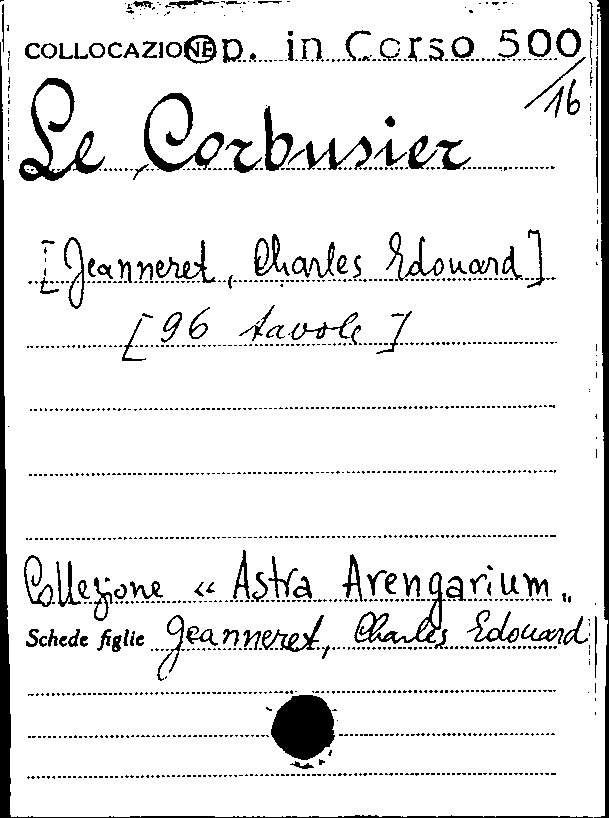 COLLOCAZIONE Op. in Corso 500
/16
Le Corbusier
[Jeanneret, Charles Edouard]
[96 tavole]
Collezione « Astra Arengarium „
Schede figlie Jeanneret, Charles Edouard